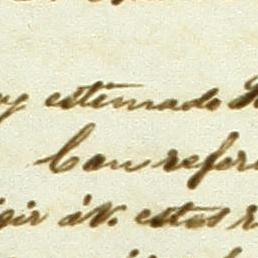 estimado
Con refer
gir á V. estas